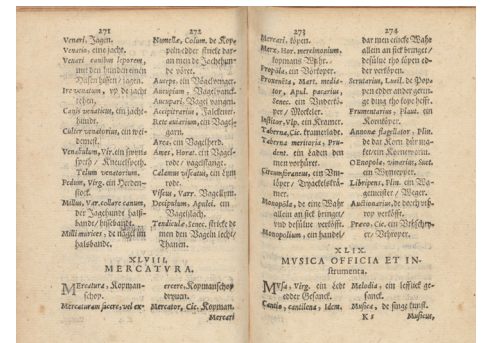 271
Venari, Jagen.
Venatio, eine jacht.
Venari canibus leporem,
mit den hunden einen
Hasen hissen / jagen.
Ire venatum, vp de jacht
tehen.
Canis venaticus, ein jacht-
hundt.
Culter venatorius, ein wei-
demest.
Venabulum, Vir. ein swyne
speth / Kneuelspeth.
Telum venatorium.
Pedum, Virg. ein Herden-
stock.
Millus, Var. collare canum,
der Jagehunde halß-
bande / hissebandt.
Milli murices, de nagel im
halsbande.
XLVIII.
MERCATURA.
Mercatura, Kopman-
schop.
Mercaturam facere, vel ex-
272
Numellæ, Colum. de Kop-
pel edder stricke dar-
an men de Jachthun-
de vöret.
Auceps, ein Vagelfenger.
Aucupium, Vagelfanck.
Aucupari, Vagel fangen.
Accipitrarius, Falckener.
Aviarium, ein Vagel-
garn.
Area, ein Vagelherd.
Ames, Horat. ein Vagel-
rode / vagelstange.
Calamus viscatus, ein lym
rode.
Viscus, Varr. Vagellym.
Decipulum, Apulei. ein
Vagelslach.
Tendicula, Senec. stricke de
men den Vageln lecht /
Thanen.
ercere, Kopmanschop
dryuen.
Mercator, Cic. Kopman.
Mercari
273
Mercari, köpen.
Merx, Hor. mercimonium,
kopmans Wahr.
Propola, ein Vörköper.
Proxeneta, Mart. media-
tor, Apul. pararius,
Senec. ein Vnderkö-
per / Meckeler.
Institor, Vlp. ein Kramer.
Taberna, Cic. kramerlade.
Taberna meritoria, Pru-
dent. ein Laden den
men vorhüret.
Circumforaneus, ein Vm-
löper / Tyrackelskrä-
mer.
Monopola, de eine Wahr
allein an sick bringet /
vnd desülue vorköfft.
Monopolium, ein handel /
XLIX.
MVSICA OFFICIA ET IN-
strumenta.
Musa, Virg. ein Ledt
edder Gesanck.
Cantio, cantilena, Idem.
274
dar men eincke Wahr
allein an sick bringet /
desülue tho löpen ed-
der verköpen.
Scrutarius, Lucil. de Pop-
pen edder ander gerin-
ge ding tho kope hefft.
Frumentarius, Plaut. ein
Kornköper.
Annonæ flagellator, Plin.
de dat Korn dür ma-
ket / ein Korneworm.
Oenopola, vinarius, Suet.
ein Wyntepper.
Libripens, Plin. ein Wa-
gemeister / Weger.
Auctionarius, de dorch vth-
rop verköfft.
Præco, Cic. ein Vthschry-
er / Vthroper.
Melodia, ein leefflick ge-
sanck.
Musica, de singe kunst.
K s Musicus,